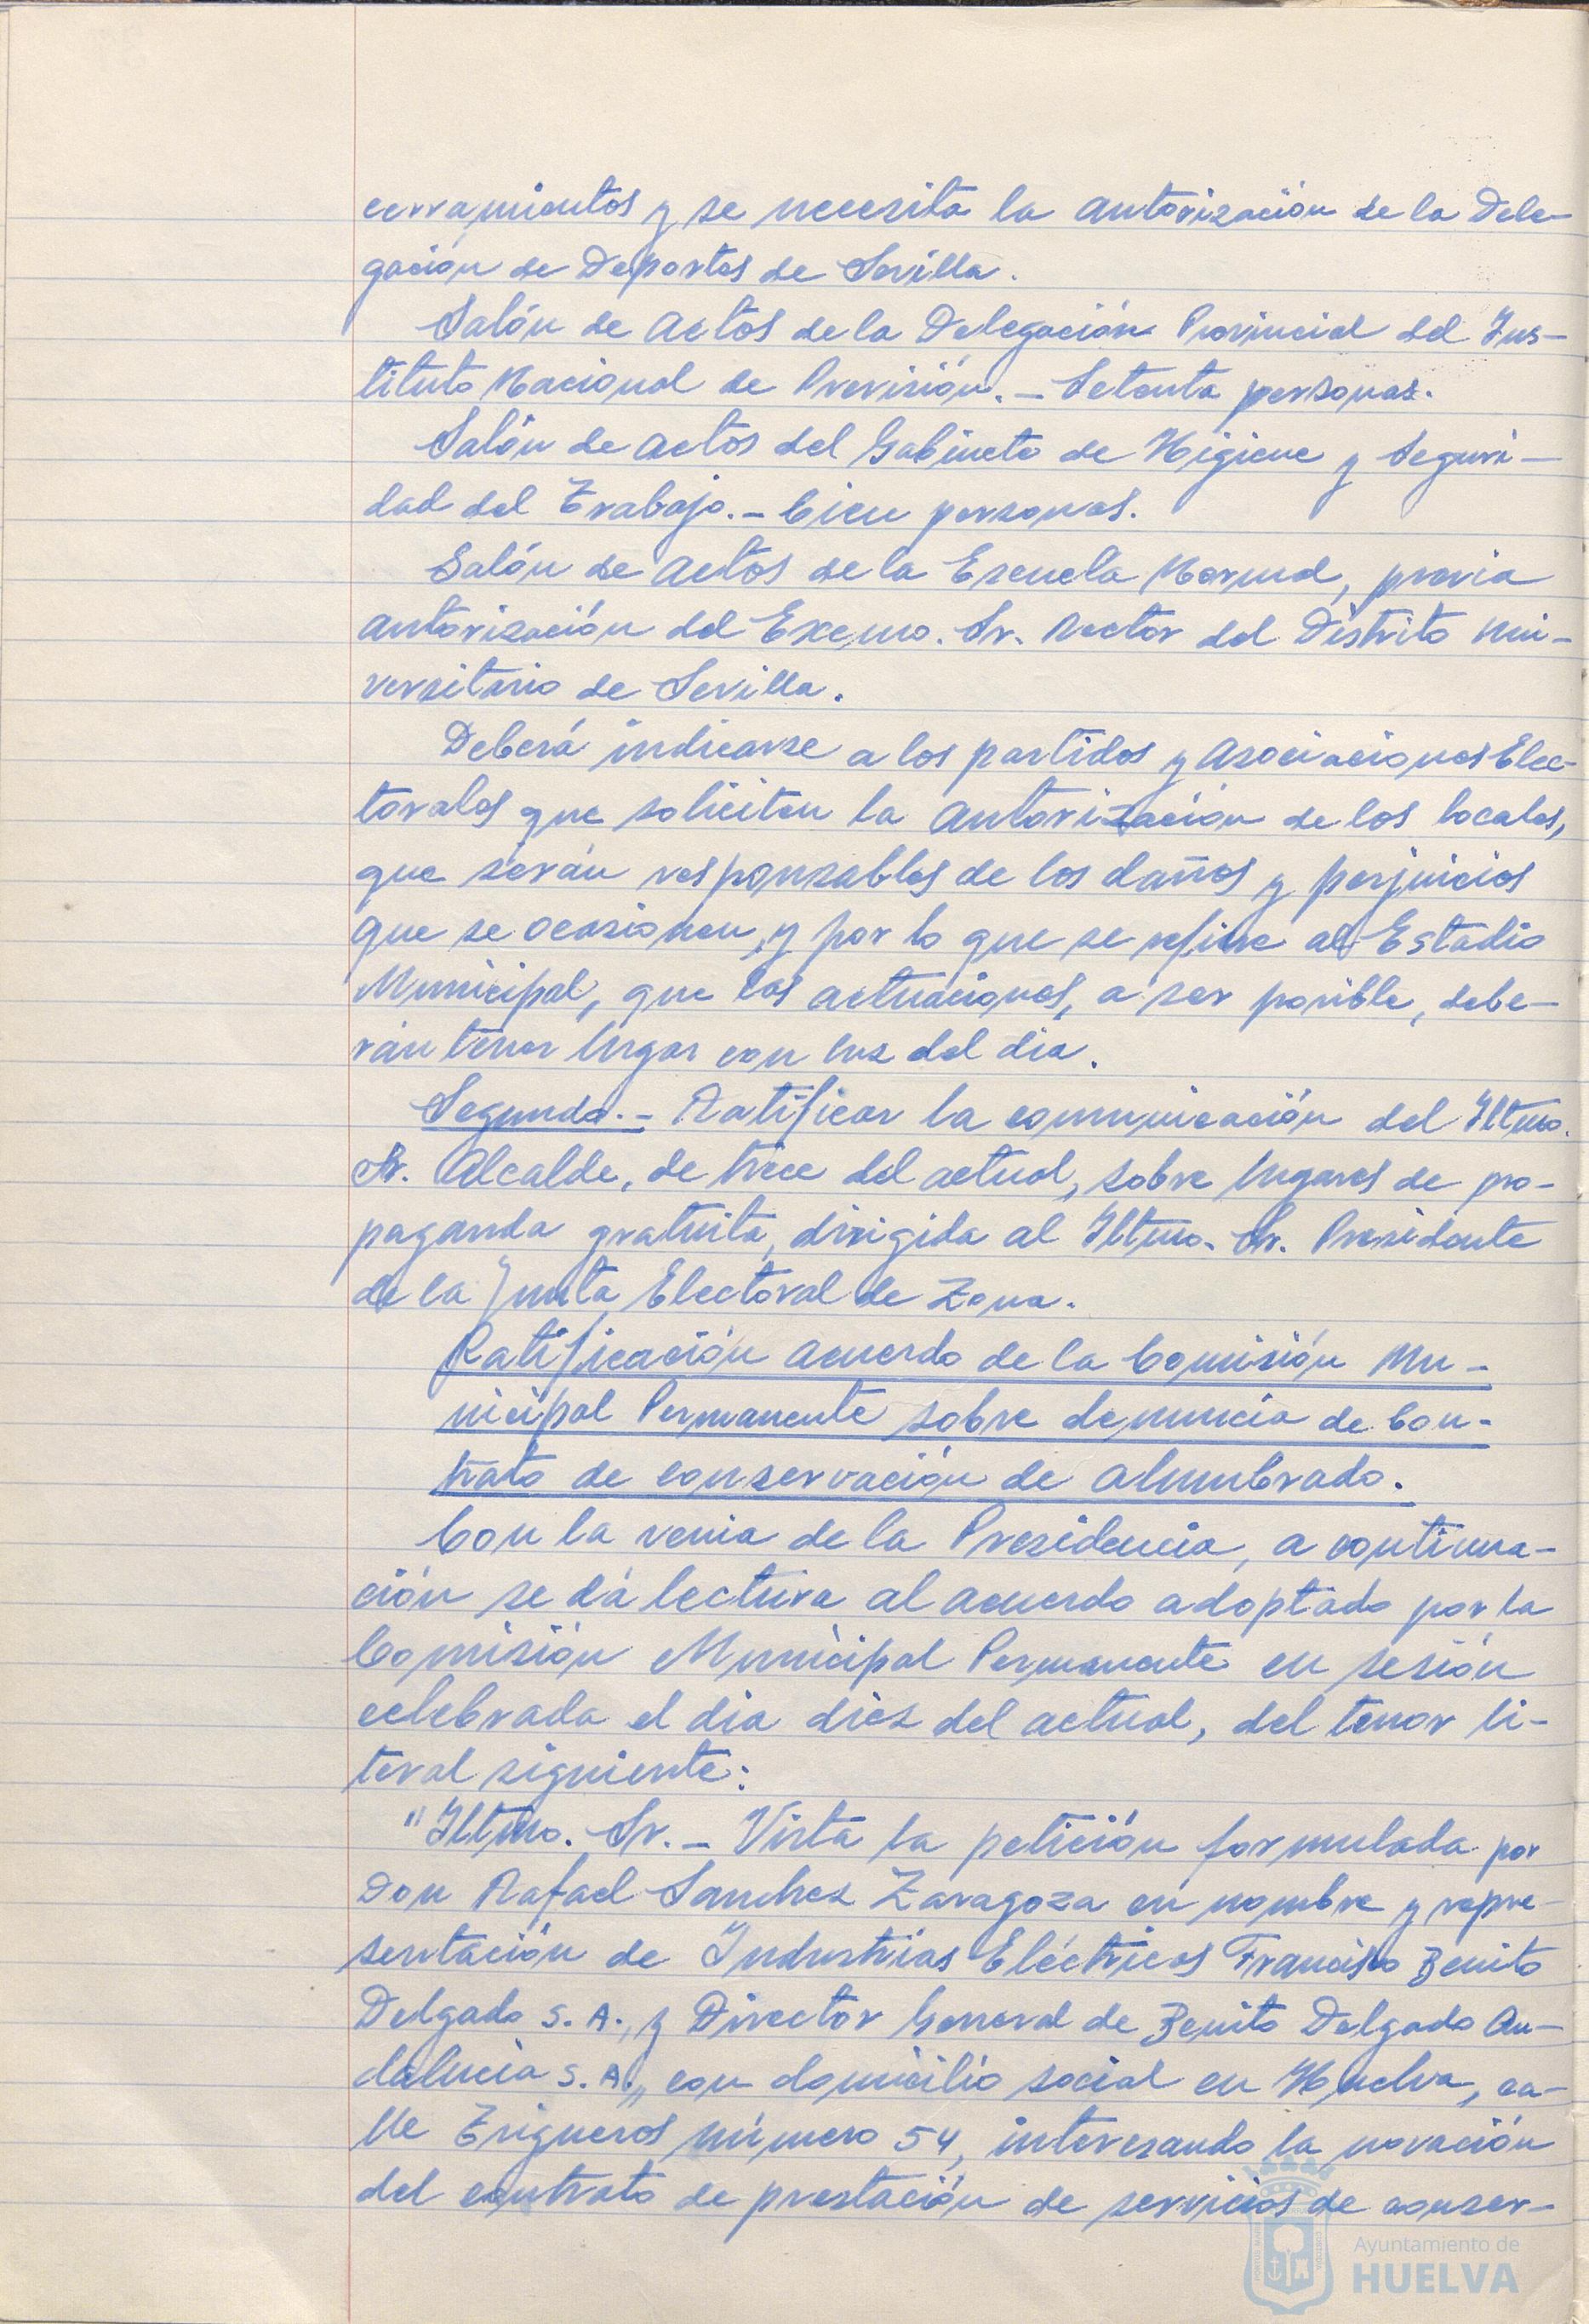 cerramientos y se necesita la autorización de la Dele-
gación de Deportes de Sevilla.
Salón de actos de la Delegación Provincial del Ins-
tituto Nacional de Previsión. - Setenta personas.
Salón de actos del Gabinete de Higiene y Seguri-
dad del Trabajo. - Cien personas.
Salón de actos de la Escuela Normal, previa
autorización del Excmo. Sr. Rector del Distrito Uni-
versitario de Sevilla.
Deberá indicarse a los partidos y Asociaciones Elec-
torales que soliciten la autorización de los locales,
que serán responsables de los daños y perjuicios
que se ocasionen, y por lo que se refiere al Estadio
Municipal, que las actuaciones, a ser posible, debe-
rán tener lugar con luz del dia.
Segundo. - Ratificar la comunicación del Iltmo.
Sr. Alcalde, de trece del actual, sobre lugares de pro-
paganda gratuita, dirigida al Iltmo. Sr. Presidente
de la Junta Electoral de Zona.
Ratificación acuerdo de la Comisión Mu-
nicipal Permanente sobre denuncia de Con-
trato de conservación de alumbrado.
Con la venia de la Presidencia, a continua-
ción se dá lectura al acuerdo adoptado por la
Comisión Municipal Permanente en sesión
celebrada el dia diez del actual, del tenor li-
teral siguiente:
"Iltmo. Sr. - Vista la petición formulada por
Don Rafael Sanchez Zaragoza en nombre y repre-
sentación de Industrias Eléctricas Francisco Benito
Delgado S. A., y Director General de Benito Delgado An-
dalucia S. A., con domicilio social en Huelva, ca-
lle Trigueros número 54, interesando la novación
del contrato de prestación de servicios de conser-
Ayuntamiento de
HUELVA